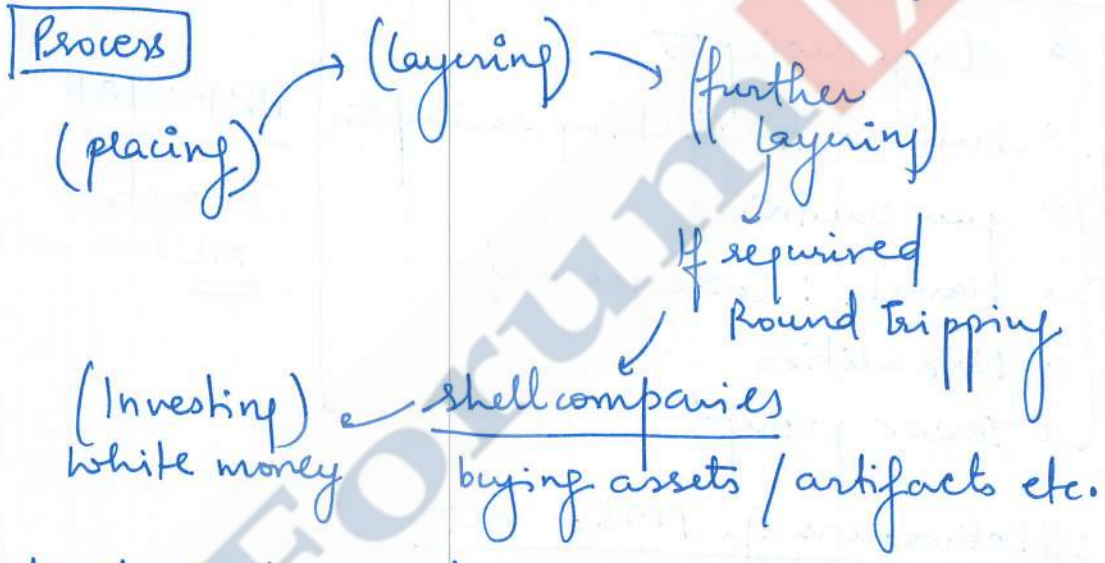 Process
(placing) (layering) (further
layering)
If requrired
Round Tripping
(Investing) shell companies
white money buying assets / artifacts etc.
Forum